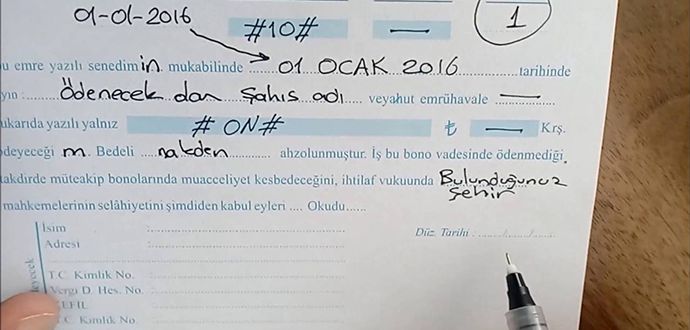 01-01-2016 #10# — 1
u emre yazılı senedim in. mukabilinde ....... 01 OCAK 2016 ............. tarihinde
yın : ..... Ödenecek dan şahıs adı ..... veyahut emrühavale —
ukarıda yazılı yalnız # ON# ₺ — Krş.
deyeceği m. Bedeli .... nakden ..... ahzolunmuştur. İş bu bono vadesinde ödenmediği
takdirde müteakip bonolarında muacceliyet kesbedeceğini, ihtilaf vukuunda Bulunduğunuz
Şehir
mahkemelerinin selâhiyetini şimdiden kabul eyleri .... Okudu......
İsim :
Düz. Tarihi ....../....../......
Adresi :
T.C. Kimlik No. :
Vergi D. Hes. No. :
KEFİL
T.C. Kimlik No. :